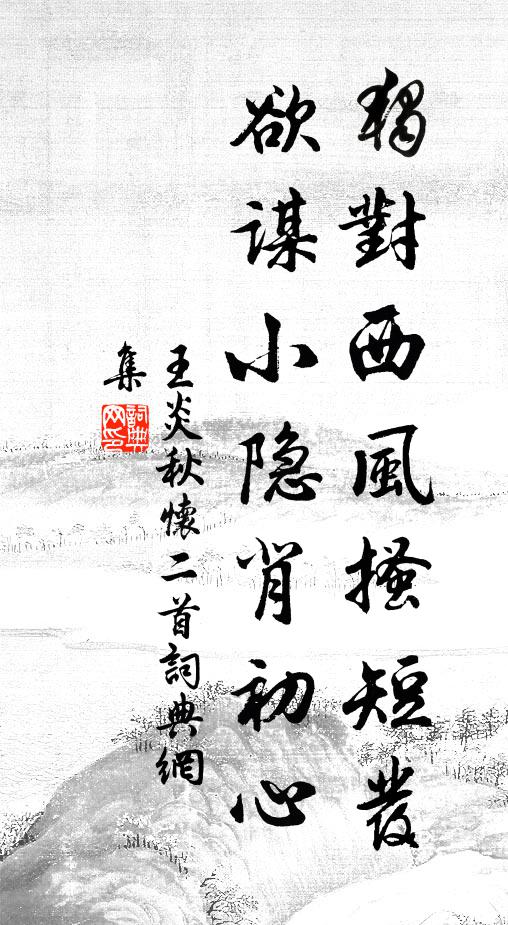 獨對西風搔短發
欲謀小隐背初心
王炎秋懷二首詞典網
集
詞典网印